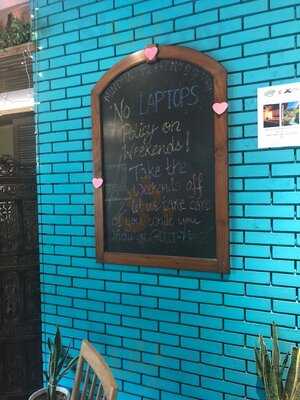 No LAPTOPS
Policy on
Weekends!
Take the
weekends off
let us take care
of you while you